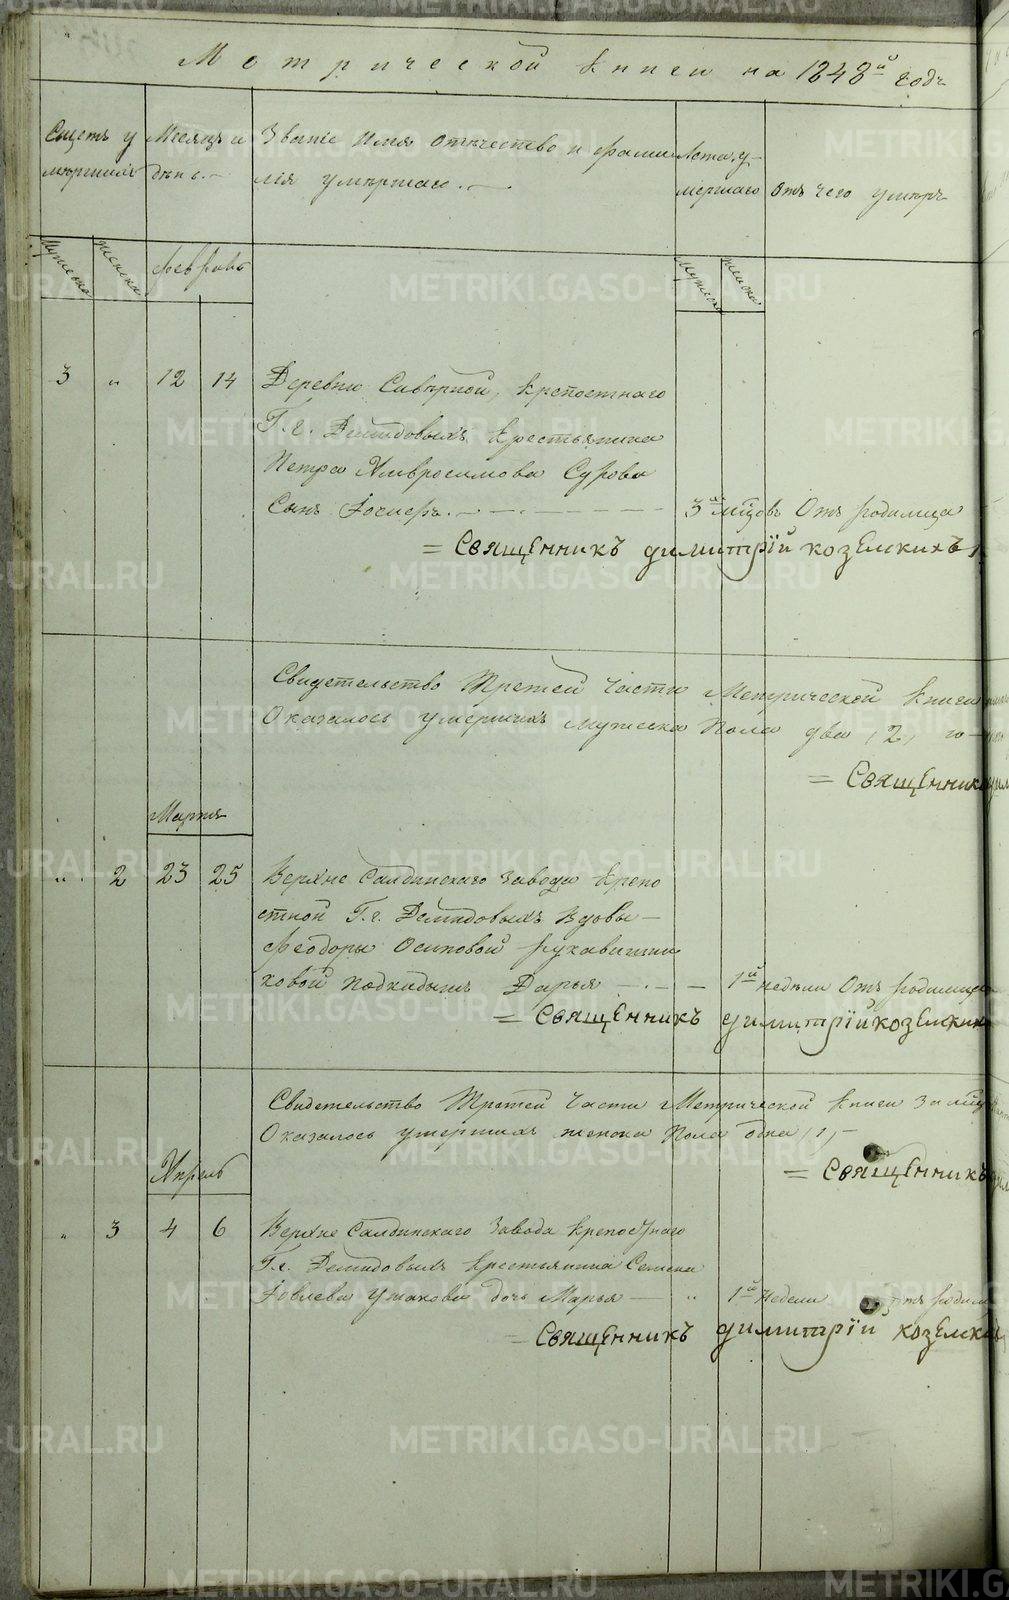 Метрической книги на 1848й годъ
Счетъ у
мершихъ
Месяцъ и
день.
Званiе имя отчество и фами
лiя умершаго.
Лета у-
мершаго
отъ чего умеръ
Мужеска
Женска
Февраль
Мужеска
Женска
3 " 12 14 Деревни Северной, крепостнаго
Г.г. Демидовыхъ крестьянина
Петра Амвросимова Сурова
Сынъ 3й месцовъ Отъ родимца
= Священникъ димитрiй козелскихъ
Свидетельство Третей части Метрической книги
Оказалось умершихъ мужеска пола два (2)
= Священникъ
Мартъ
" 2 23 25 Верхне Салдинскаго завода крепо
стной Г.г. Демидовыхъ вдовы
Феодоры Осиповой Рукавишни
ковой подкидышъ Дарья 1й недели Отъ родимца
= Священникъ димитрiй козелских
Свидетельство Третей части Метрической книги за
Оказалось умершихъ женска пола одна (1)
= Священникъ
Апрель
" 3 4 6 Верхне Салдинскаго завода крепостнаго
Г.г. Демидовыхъ крестьянина Семена
Iовлева Ушакова дочь Марья " 1й недели отъ родим
= Священникъ димитрiй козелски
METRIKI.GASO-URAL.RU